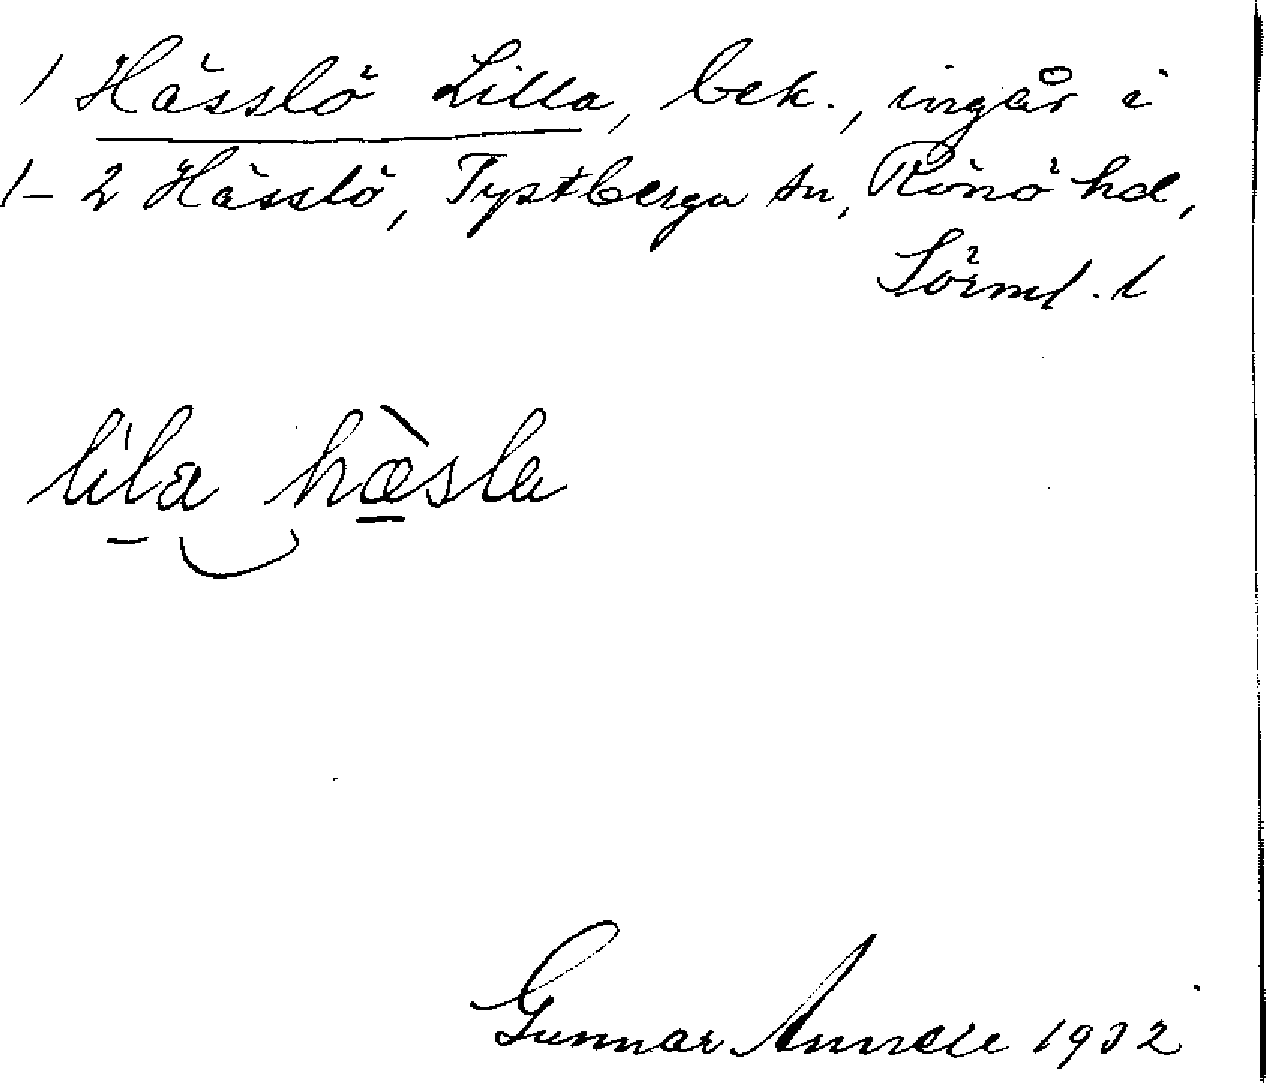 1 Hässlö Lilla, bek., ingår i
1-2 Hässlö, Tystberga sn, Rönö hd,
Sörml. l
lila hæsla
Gunnar Annell 1932